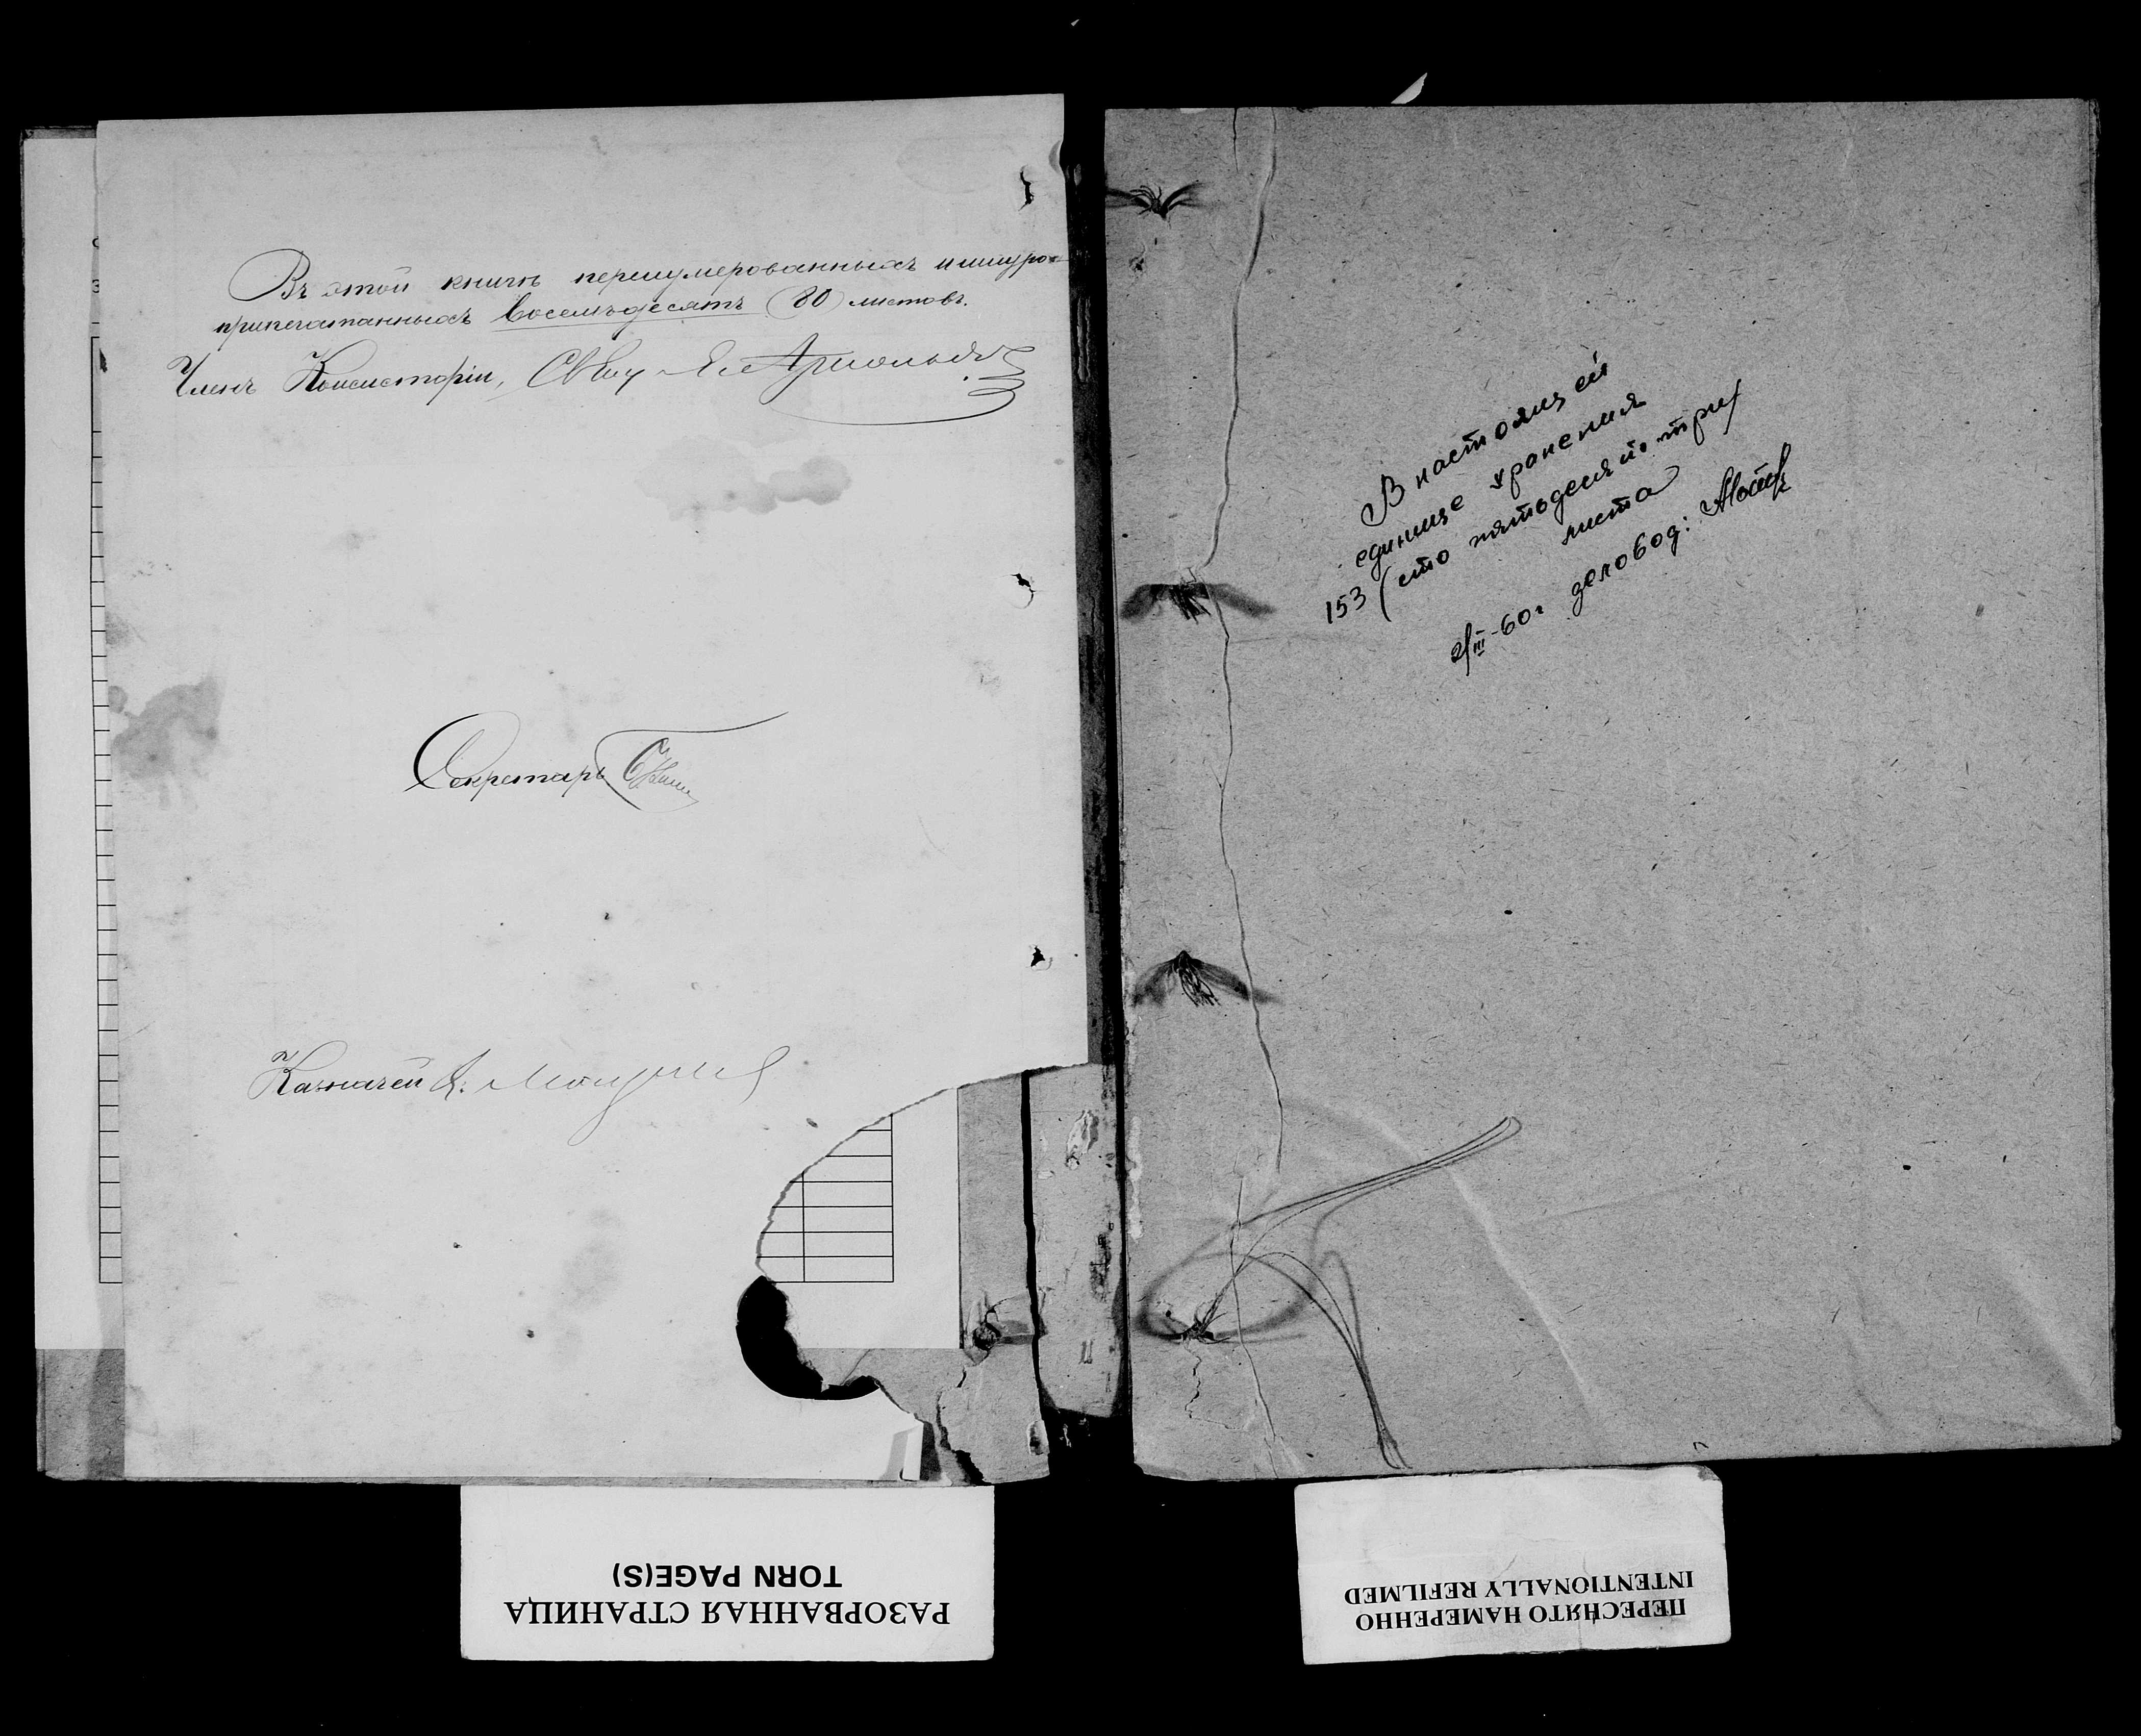 Въ этой книгѣ перенумерованныхъ и шнуро-
припечатанныхъ восемьдесятъ (80) листовъ.
Членъ Консисторіи,
Секретарь
Казначей А.
В настоящей
единице хранения
153 (сто пятьдесят три)
листа
2/III-60г деловод:
РАЗОРВАННАЯ СТРАНИЦА
TORN PAGE(S)
ПЕРЕСНЯТО НАМЕРЕННО
INTENTIONALLY REFILMED